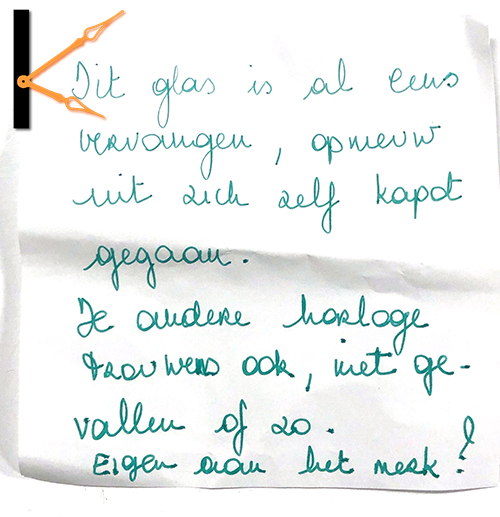 Dit glas is al eens
vervangen, opnieuw
uit zich zelf kapot
gegaan.
Je andere horloge
trouwens ook, niet ge-
vallen of zo.
Eigen aan het merk?